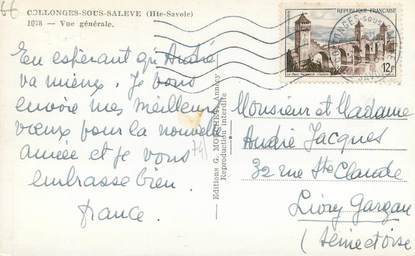 COLLONGES-SOUS-SALEVE (Hte-Savoie)
1078 — Vue générale.
En espérant qu'André
va mieux. Je vous
envoie mes meilleurs
vœux pour la nouvelle
année et je vous
embrasse bien.
France.
(74)
Editions G. Annecy
Reproduction interdite
REPUBLIQUE FRANÇAISE
12F
Monsieur et Madame
André Jacques
32 rue Ste Claude
Livry Gargan
(Seine et Oise